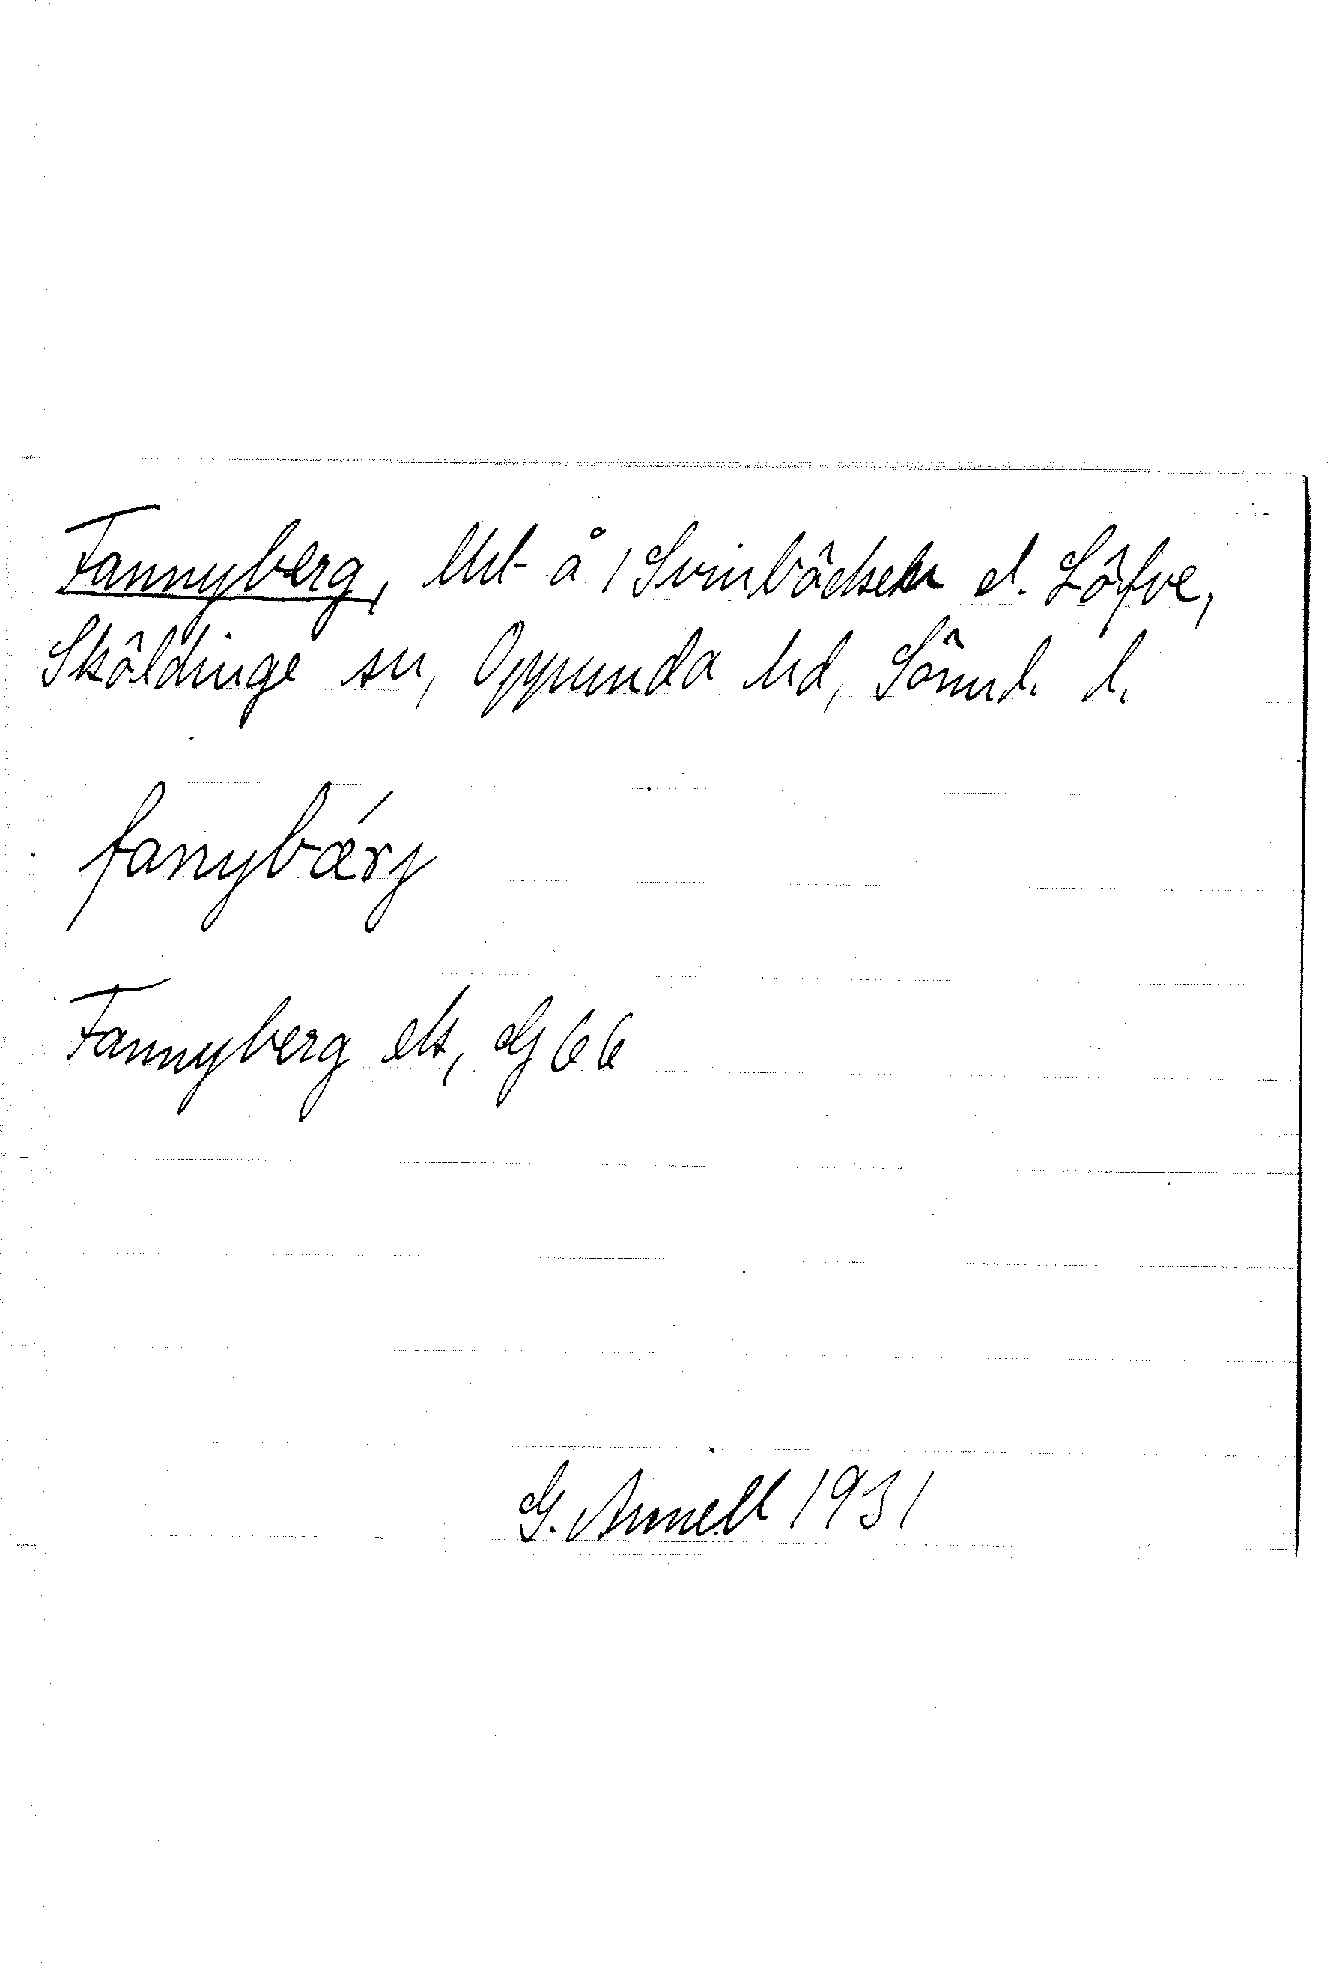 Fannyberg, lht å 1 Svinbäcken el. Löfve,
Sköldinge sn, Oppunda hd, Söml. l.
fanybǽrj
Fannyberg ek, G 66
G. Annell 1931